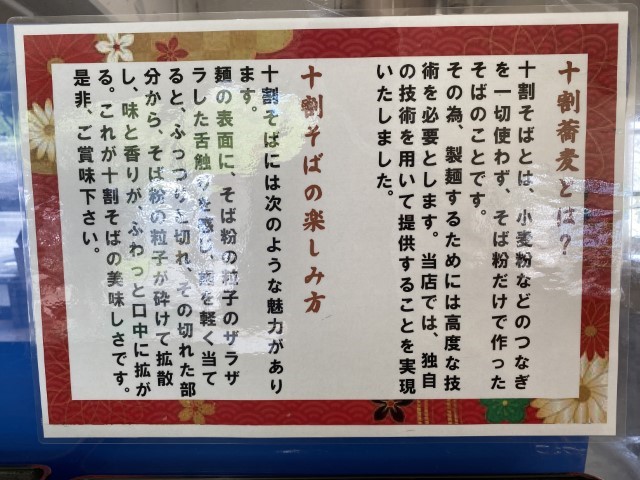 十割蕎麦とは？
十割そばとは、小麦粉などのつなぎ
を一切使わず、そば粉だけで作った
そばのことです。
その為、製麺するためには高度な技
術を必要とします。当店では、独自
の技術を用いて提供することを実現
いたしました。
十割そばの楽しみ方
十割そばには次のような魅力があり
ます。
麺の表面に、そば粉の粒子のザラザ
ラした舌触りを感じ、麺を軽く当て
ると、ふっつりと切れ、その切れた部
分から、そば粉の粒子が砕けて拡散
し、味と香りが、ふわっと口中に拡が
る。これが十割そばの美味しさです。
是非、ご賞味下さい。